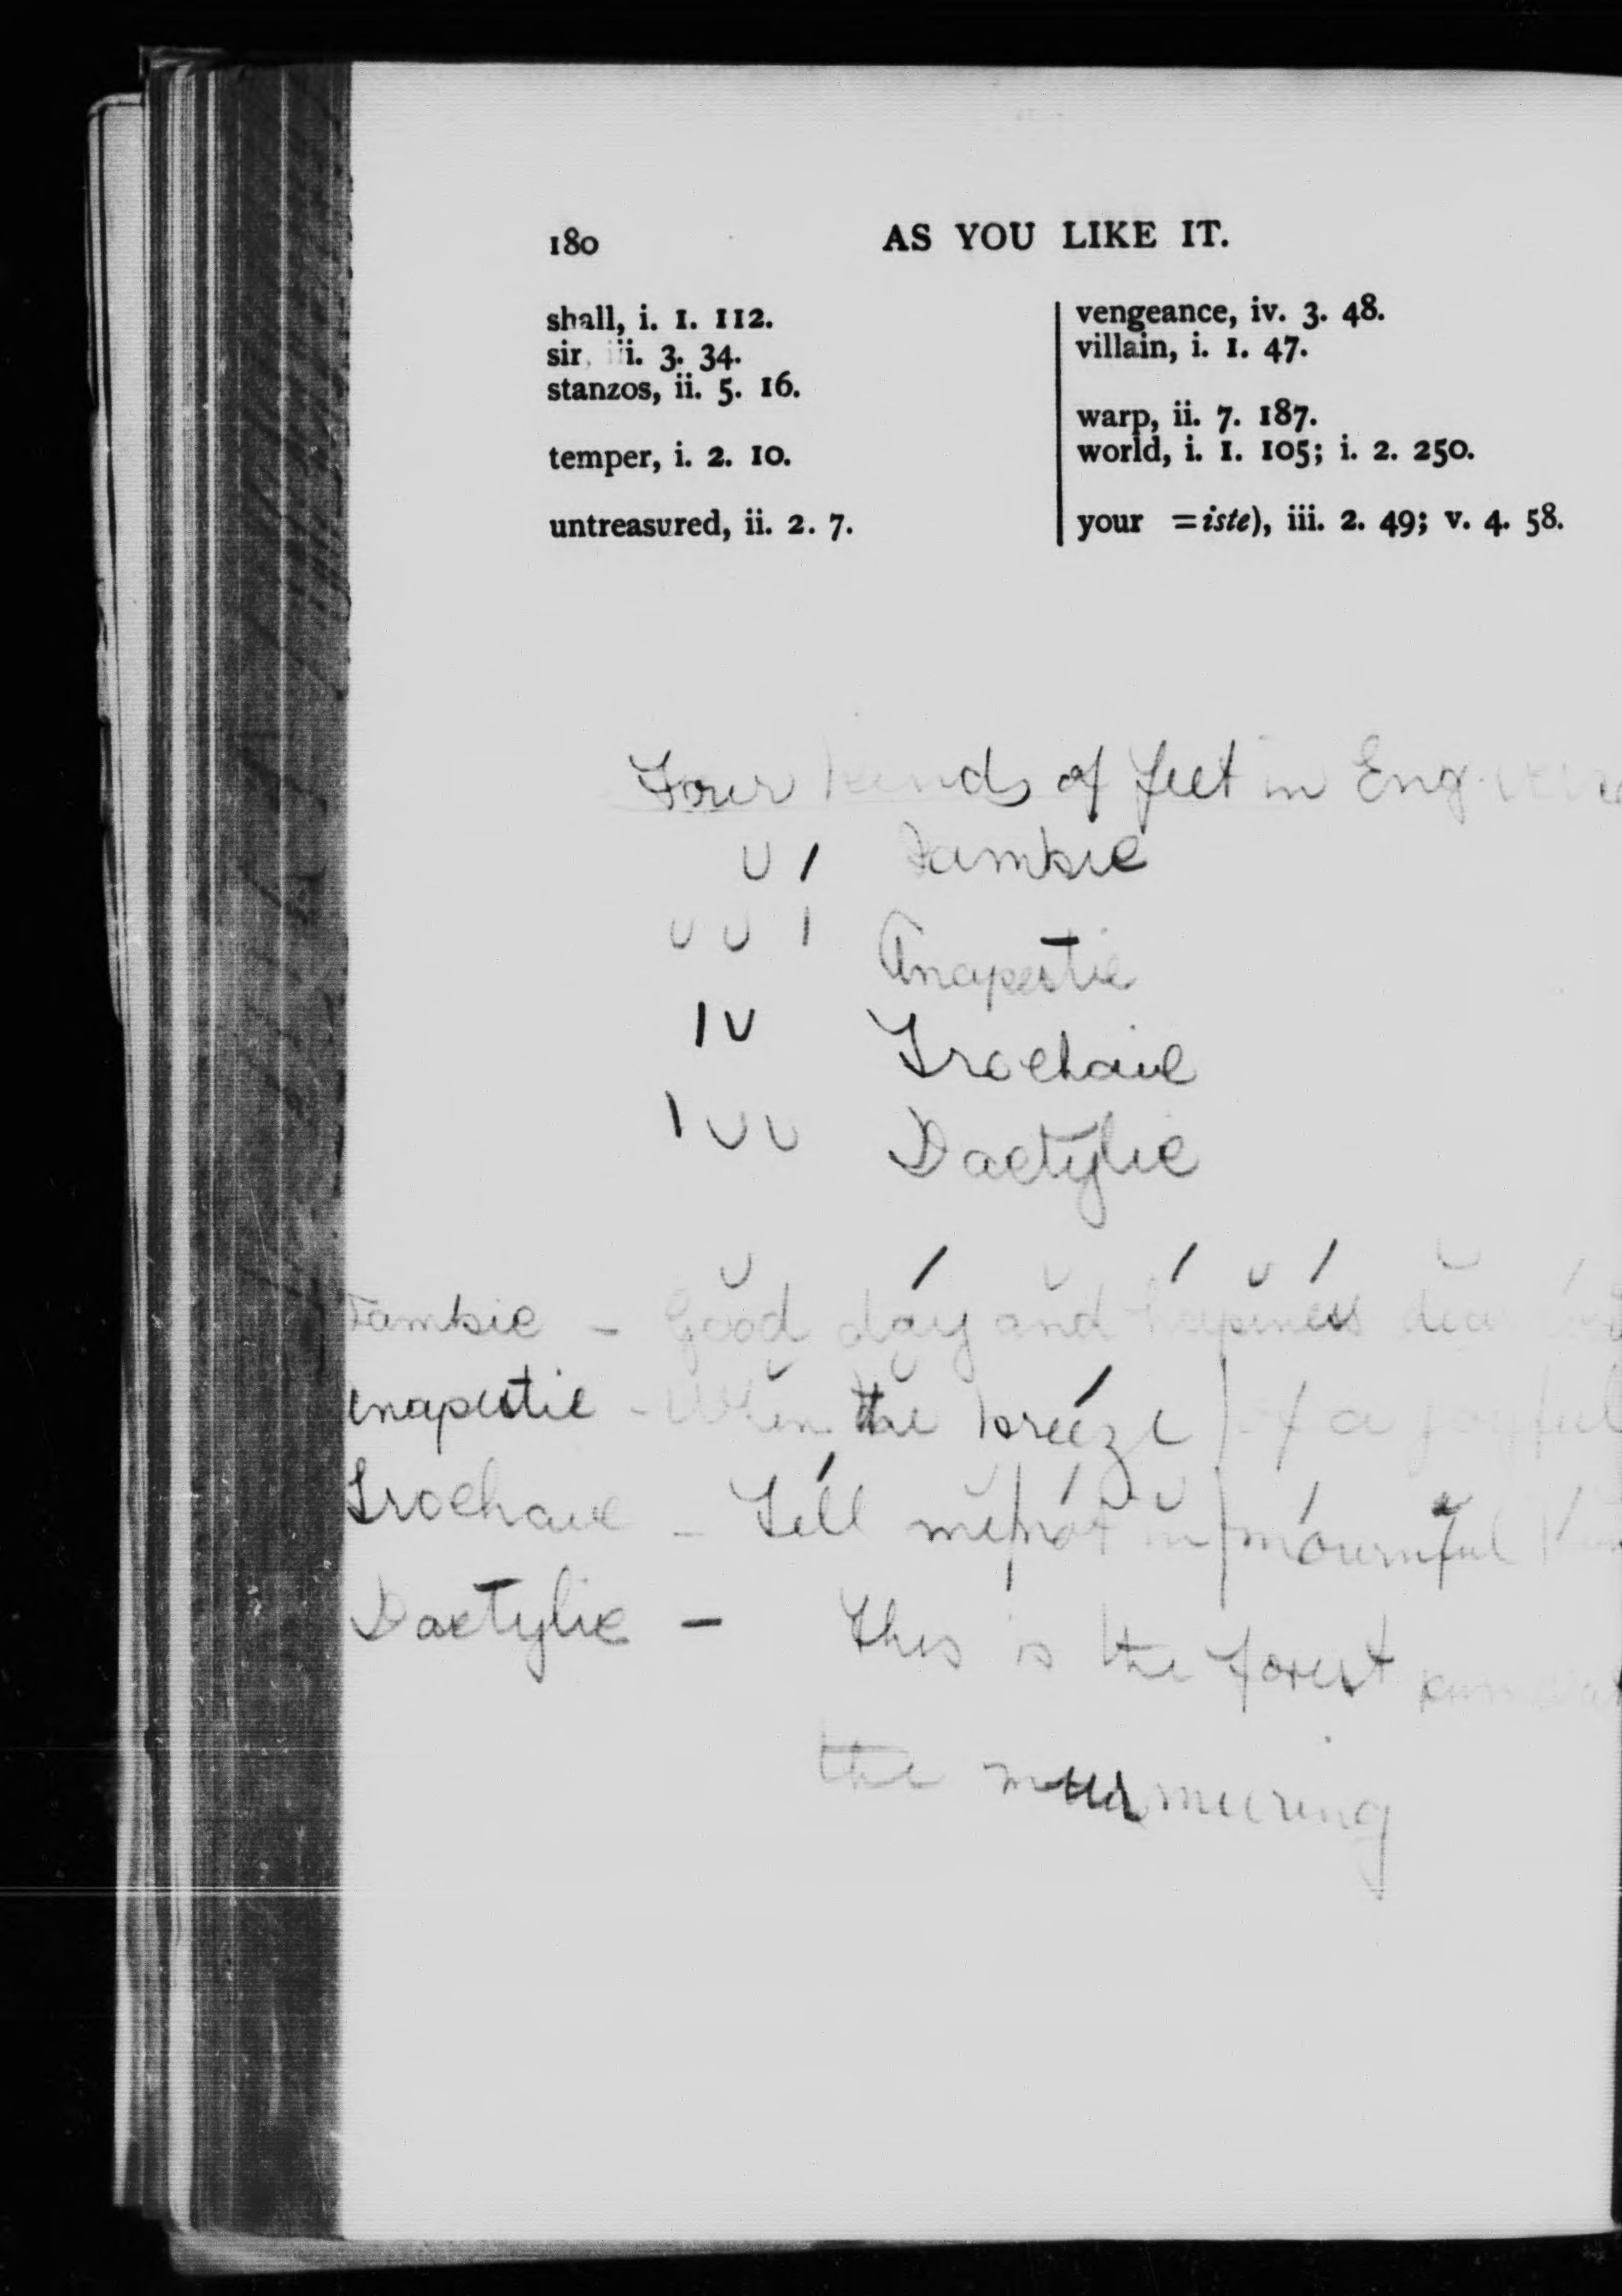 180
AS YOU LIKE IT.
shall, i. 1. 112.
sir, iii. 3. 34.
stanzos, ii. 5. 16.
temper, i. 2. 10.
untreasured, ii. 2. 7.
vengeance, iv. 3. 48.
villain, i. 1. 47.
warp, ii. 7. 187.
world, i. 1. 105; i. 2. 250.
your =iste), iii. 2. 49; v. 4. 58.
Four kinds of feet in Eng.
U / Iambic
U U / Anapestic
/ U Trochaic
/ U U Dactylic
Iambic - Good day and happiness dear
Anapestic - When the breeze | of a joyful
Trochaic - Tell me | not in | mournful
Dactylic - This is the forest
the murmuring